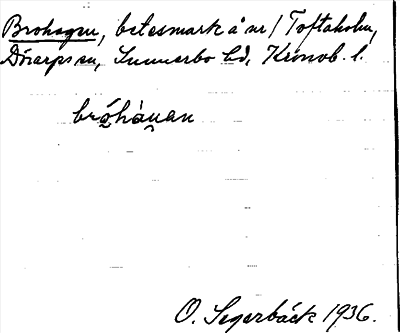 Brohagen, betesmark å nr 1 Toftaholm,
Dörarps sn, Sunnerbo hd, Kronob. l.
bró̤hàu̯an
O. Segerbäck 1936.